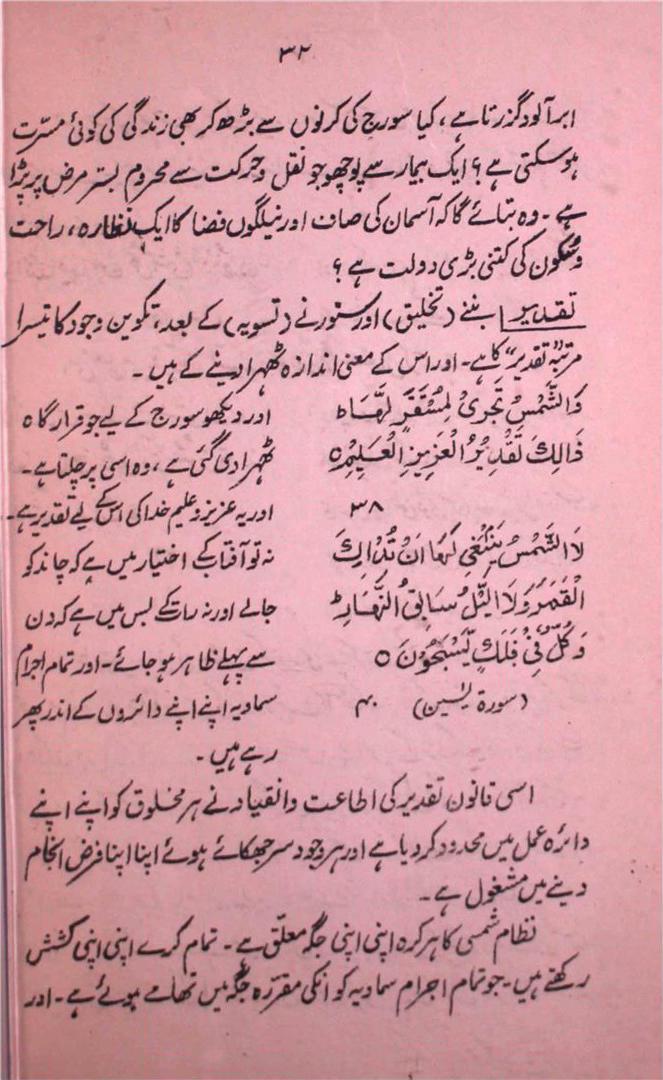 ۳۲
ابر آلود گزرتا ہے، کیا سورج کی کرنوں سے بڑھ کر بھی زندگی کی کوئی مسرّت
ہو سکتی ہے؟ ایک بیمار سے پوچھو جو نقل و حرکت سے محروم بستر مرض پر پڑا
ہے۔ وہ بتائے گا کہ آسمان کی صاف اور نیلگوں فضا کا ایک نظارہ، راحت
و سکون کی کتنی بڑی دولت ہے؟
تقدیر بننے (تخلیق) اور سنورنے (تسویہ) کے بعد، تکوین وجود کا تیسرا
مرتبہ "تقدیر" کا ہے۔ اور اس کے معنی اندازہ ٹھہرا دینے کے ہیں۔
وَالشَّمْسُ تَجْرِىْ لِمُسْتَقَرٍّ لَّهَا ط
ذَالِكَ تَقْدِيْرُ الْعَزِيْزِ الْعَلِيْمِ ○
۳۸
لَا الشَّمْسُ يَنْبَغِى لَهَا اَنْ تُدْرِكَ
الْقَمَرَ وَلَا الَّيْلُ سَابِقُ النَّهَارِ ط
وَكُلٌّ فِىْ فَلَكٍ يَّسْبَحُوْنَ ○
(سورۃ یٰسین) ۴۰
اور دیکھو سورج کے لیے جو قرار گاہ
ٹھہرا دی گئی ہے، وہ اسی پر چلتا ہے۔
اور یہ عزیز و علیم خدا کی اس کے لیے تقدیر ہے۔
نہ تو آفتاب کے اختیار میں ہے کہ چاند کو
جالے اور نہ رات کے بس میں ہے کہ دن
سے پہلے ظاہر ہو جائے۔ اور تمام اجرام
سماویہ اپنے اپنے دائروں کے اندر پھر
رہے ہیں۔
اسی قانون تقدیر کی اطاعت و انقیاد نے ہر مخلوق کو اپنے اپنے
دائرہ عمل میں محدود کر دیا ہے اور ہر وجود سر جھکائے ہوئے اپنا اپنا فرض انجام
دینے میں مشغول ہے۔
نظام شمسی کا ہر کرہ اپنی اپنی جگہ معلّق ہے۔ تمام کرے اپنی اپنی کشش
رکھتے ہیں۔ جو تمام اجرام سماویہ کو انکی مقررّہ جگہ میں تھامے ہوئے ہے۔ اور